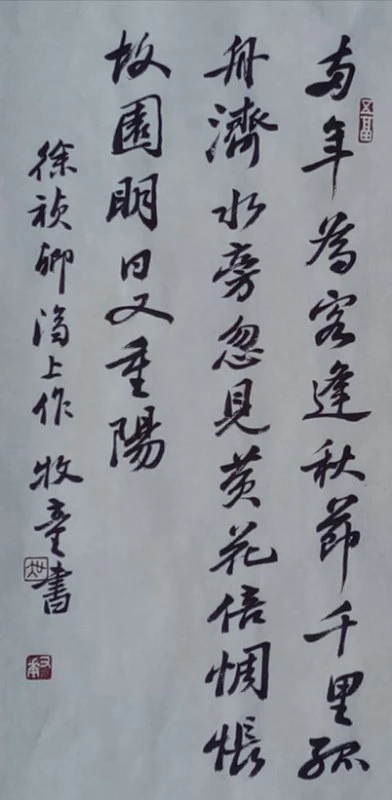 两年為客逢秋節千里孤
舟濟水旁忽見黄花倍惆悵
故園明日又重陽
徐祯卿濟上作 牧童書